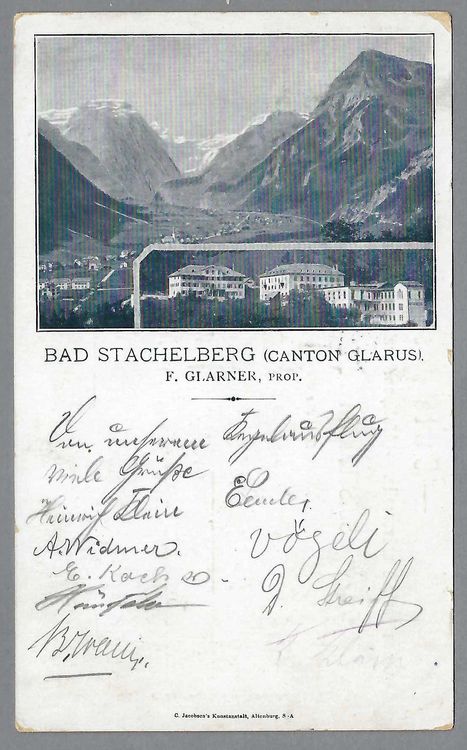 BAD STACHELBERG (CANTON GLARUS).
F. GLARNER, PROP.
Von unserem Kegelausflug
viele Grüße
Heinrich Klein
A. Widmer.
Vögeli
E. Koch
D. Streiff
C. Jacobsen's Kunstanstalt, Altenburg, S.-A